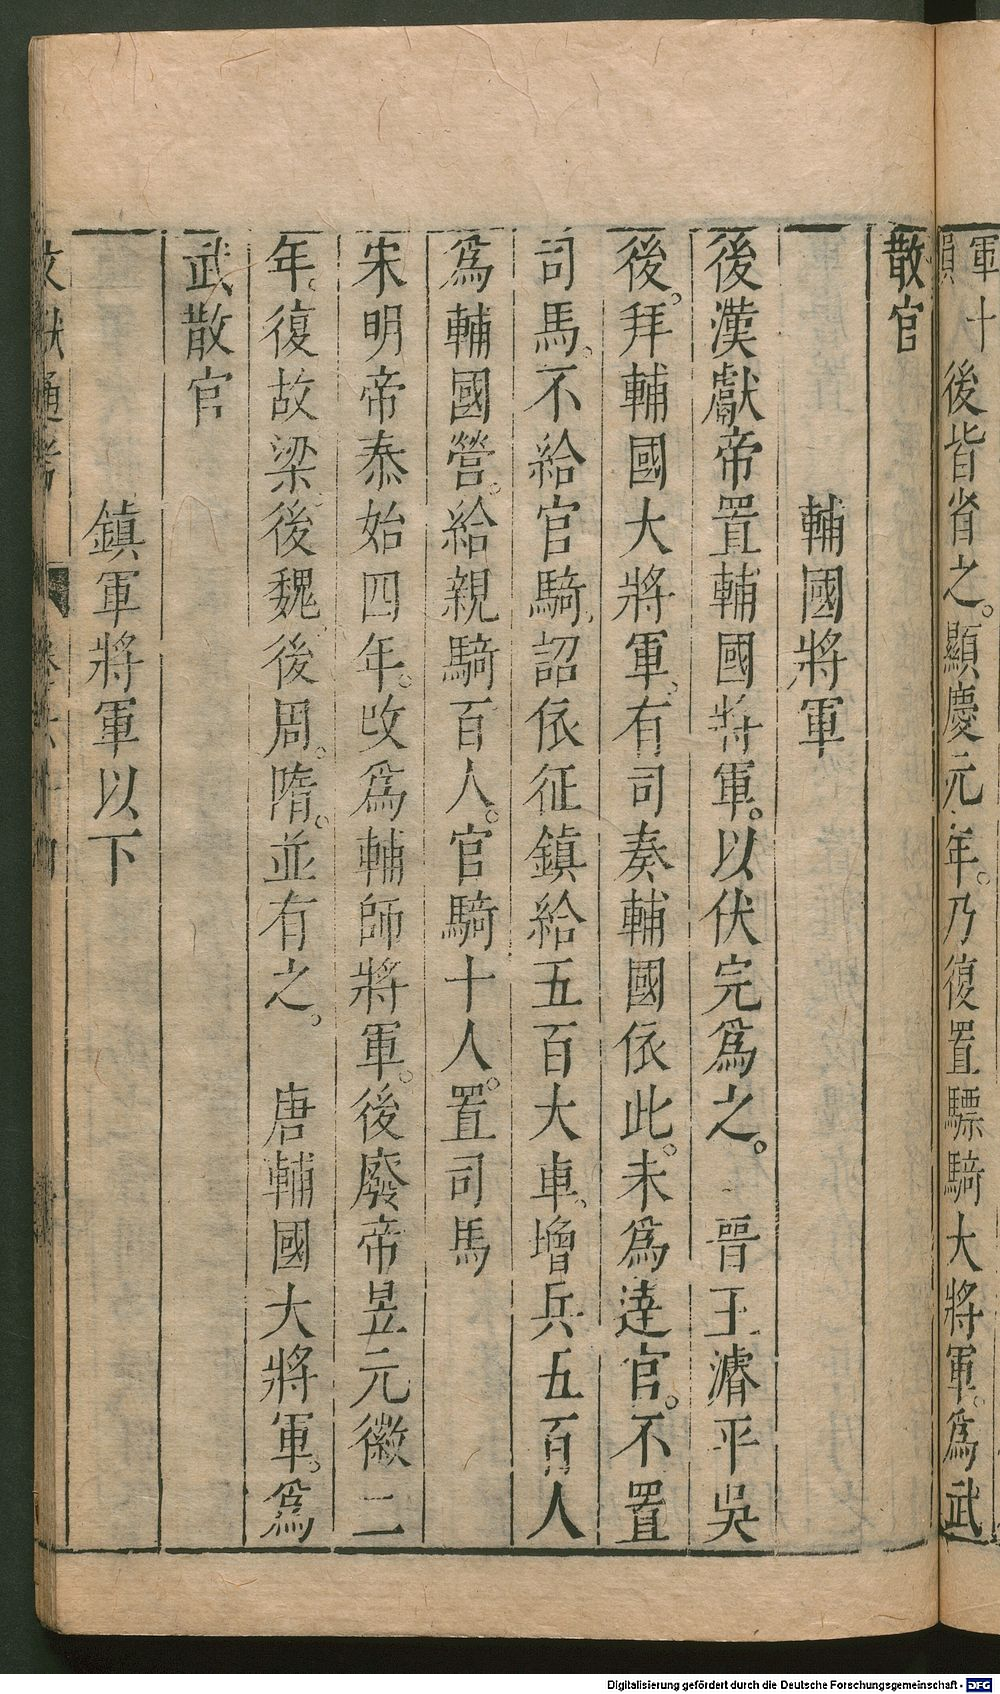 軍十
後皆省之。顯慶元年。乃復置驃騎大將軍。爲武
散官
輔國將軍
後漢獻帝置輔國將軍。以伏完爲之。 晉王濬平吳
後。拜輔國大將軍。有司奏輔國依此。未爲達官。不置
司馬。不給官騎。詔依征鎮給五百大車。增兵五百人
爲輔國營。給親騎百人。官騎十人。置司馬
宋明帝泰始四年。改爲輔師將軍。後廢帝昱元徽二
年。復故梁。後魏。後周。隋。並有之。 唐輔國大將軍。爲
武散官
鎮軍將軍以下
文獻通考
Digitalisierung gefördert durch die Deutsche Forschungsgemeinschaft - DFG